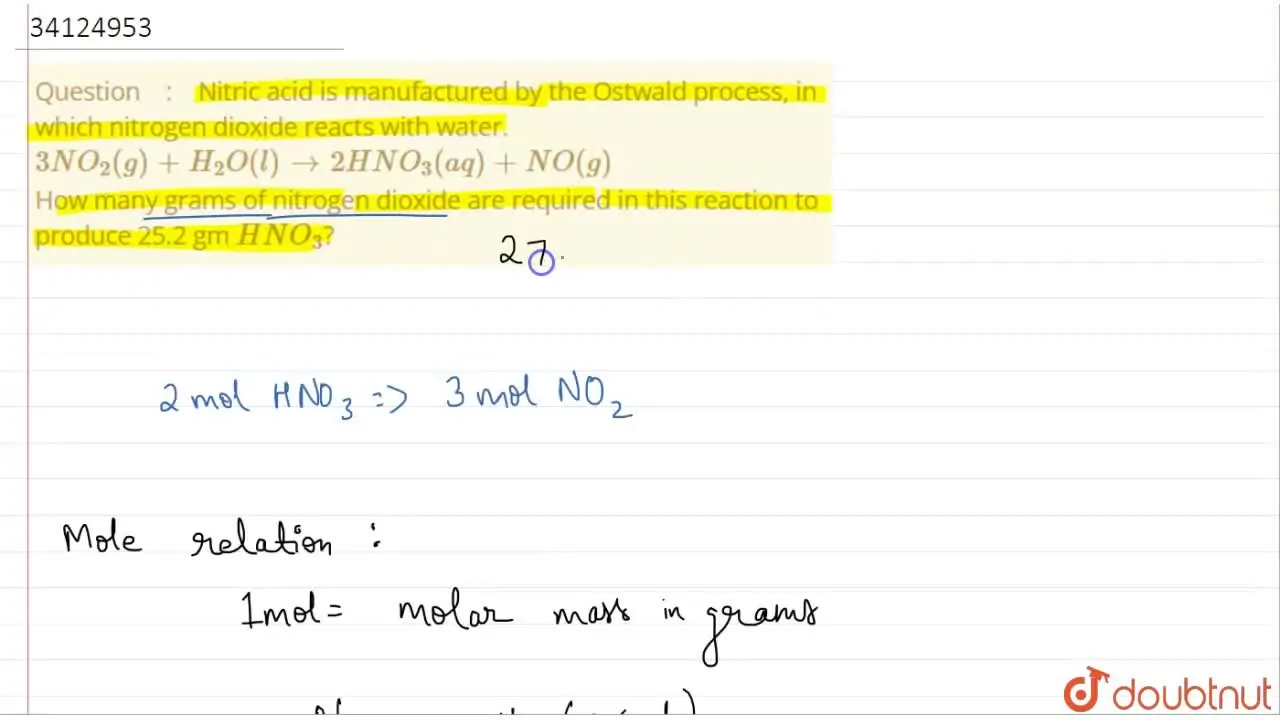 34124953
Question : Nitric acid is manufactured by the Ostwald process, in
which nitrogen dioxide reacts with water.
3NO₂(g) + H₂O(l) → 2HNO₃(aq) + NO(g)
How many grams of nitrogen dioxide are required in this reaction to
produce 25.2 gm HNO₃?
27.
2 mol HNO₃ => 3 mol NO₂
Mole relation :
1mol = molar mass in grams
doubtnut